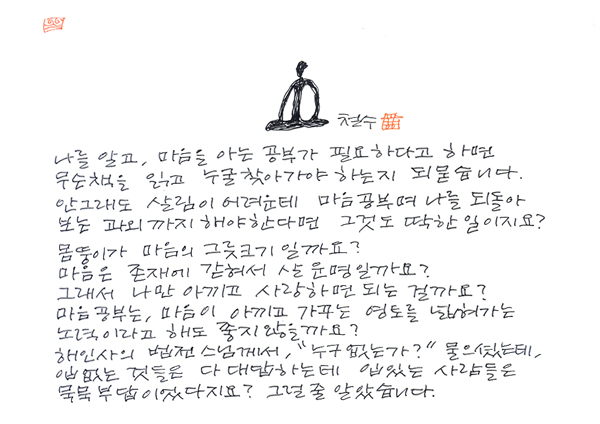 철수
나를 알고, 마음을 아는 공부가 필요하다고 하면
무슨책을 읽고 누굴 찾아가야 하는지 되묻습니다.
안그래도 살림이 어려운데 마음공부며 나를 되돌아
보는 과외까지 해야한다면 그것도 딱한 일이지요?
몸뚱이가 마음의 그릇크기일까요?
마음은 존재에 갇혀서 살 운명일까요?
그래서 나만 아끼고 사랑하면 되는 걸까요?
마음공부는, 마음이 아끼고 가꾸는 영토를 넓혀가는
노력이라고 해도 좋지 않을까요?
해인사의 법전스님께서, "누구 없는가?" 물으셨는데,
입없는 것들은 다 대답하는데 입있는 사람들은
묵묵부답이었다지요? 그럴 줄 알았습니다.